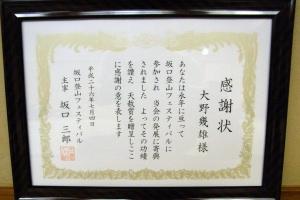 感謝状
大野幾雄様
あなたは永年に亘って
坂口登山フェスティバルに
参加され 当会の発展に寄與
されました よってその功績
を讃え 天救賞を贈呈しここ
に感謝の意を表します
平成二十六年七月四日
坂口登山フェスティバル
主宰 坂口三郎